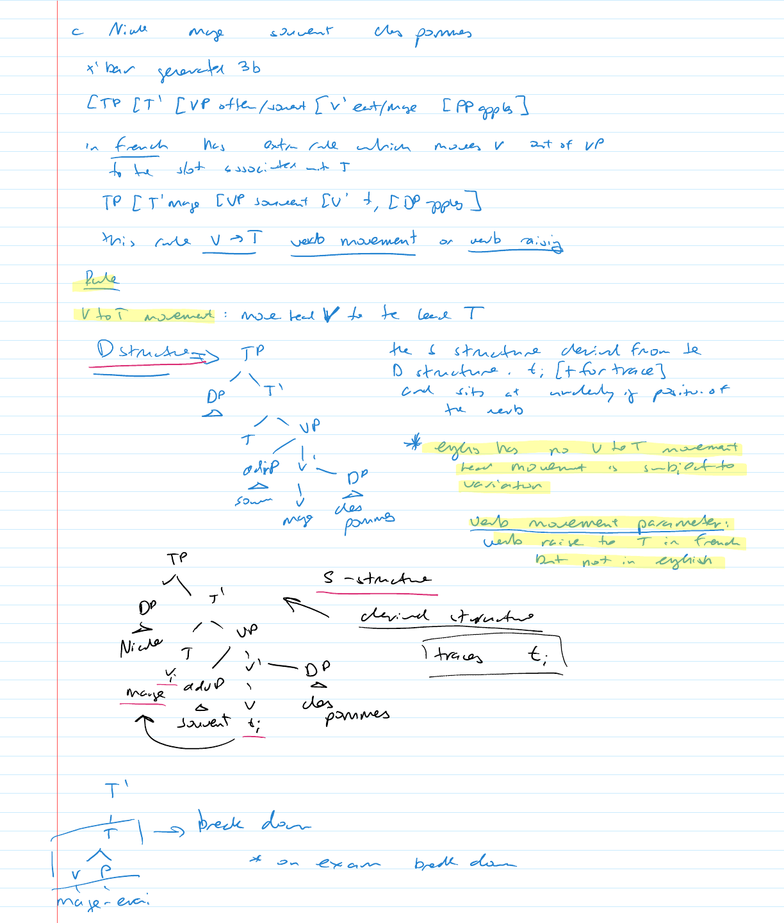 c Nicole mange souvent des pommes
x' bar generates 3b
[TP [T' [VP often/souvent [V' eat/mange [DP apples]
in french has extra rule which moves V out of VP
to the slot associated with T
TP [T' mange [VP souvent [V' ti [DP apples]
this rule V → T verb movement or verb raising
Rule
V to T movement : move head V to the head T
D structure ⇒ TP
the S structure derived from the
D structure. ti [t for trace]
and sits at underlying position of
the verb
DP T'
T VP
advP V' DP
souv V des
mange pommes
* english has no V to T movement
head movement is subject to
variation
verb movement parameter:
verb raise to T in french
but not in english
TP
S-structure
DP T'
derived structure
Nicole T VP
traces ti
Vi advP V' DP
mange souvent V des
ti pommes
T'
T → break down
V P
* on exam break down
mange-erai